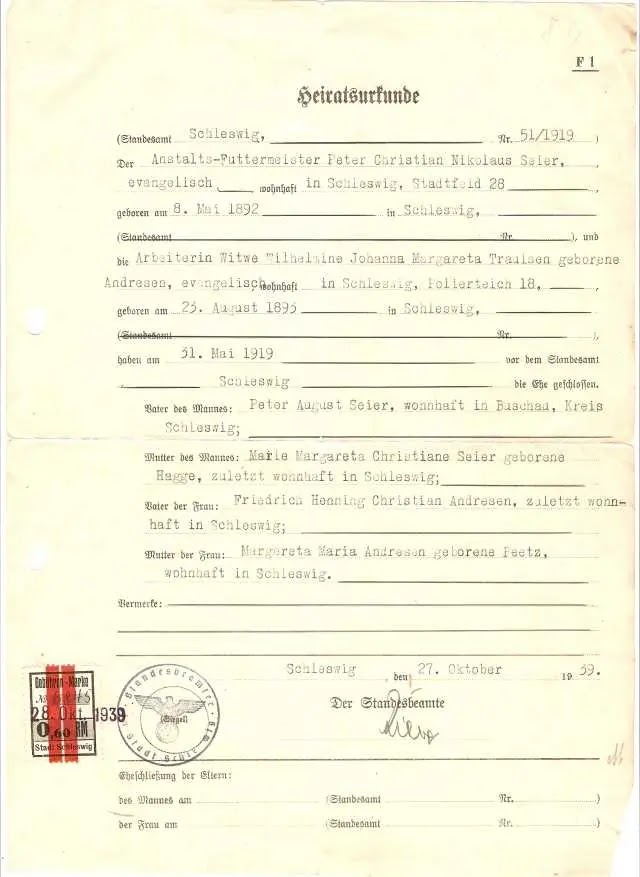 F 1
Heiratsurkunde
(Standesamt Schleswig, Nr. 51/1919 )
Der Anstalts-Futtermeister Peter Christian Nikolaus Seier,
evangelisch wohnhaft in Schleswig, Stadtfeld 28
geboren am 8. Mai 1892 in Schleswig,
(Standesamt Nr. ), und
die Arbeiterin Witwe Wilhelmine Johanna Margareta Traulsen geborene
Andresen, evangelisch, wohnhaft in Schleswig, Pollerteich 18,
geboren am 23. August 1893 in Schleswig,
(Standesamt Nr. ),
haben am 31. Mai 1919 vor dem Standesamt
Schleswig die Ehe geschlossen.
Vater des Mannes: Peter August Seier, wohnhaft in Buschau, Kreis
Schleswig;
Mutter des Mannes: Marie Margareta Christiane Seier geborene
Hagge, zuletzt wohnhaft in Schleswig;
Vater der Frau: Friedrich Henning Christian Andresen, zuletzt wohn-
haft in Schleswig;
Mutter der Frau: Margareta Maria Andresen geborene Peetz,
wohnhaft in Schleswig.
Vermerke:
Schleswig, den 27. Oktober 1939.
Der Standesbeamte
(Siegel)
Gebühren-Marke
28. Okt. 1939
0,60 RM
Stadt Schleswig
Eheschließung der Eltern:
des Mannes am (Standesamt Nr. )
der Frau am (Standesamt Nr. )